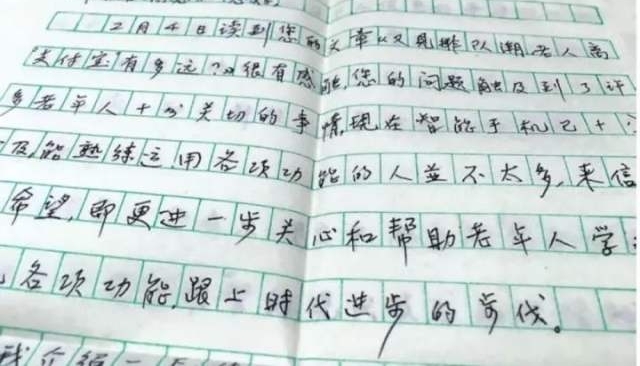 2月4日读到您的文章《又见排队潮,老人离
"支付宝"有多远?》很有感触,您的问题触及到了许
多老年人十分关切的事情,现在智能手机已十
及,能熟练运用各项功能的人並不太多,来信
希望,即更进一步关心和帮助老年人学
各项功能,跟上时代进步的步伐。
我介绍一